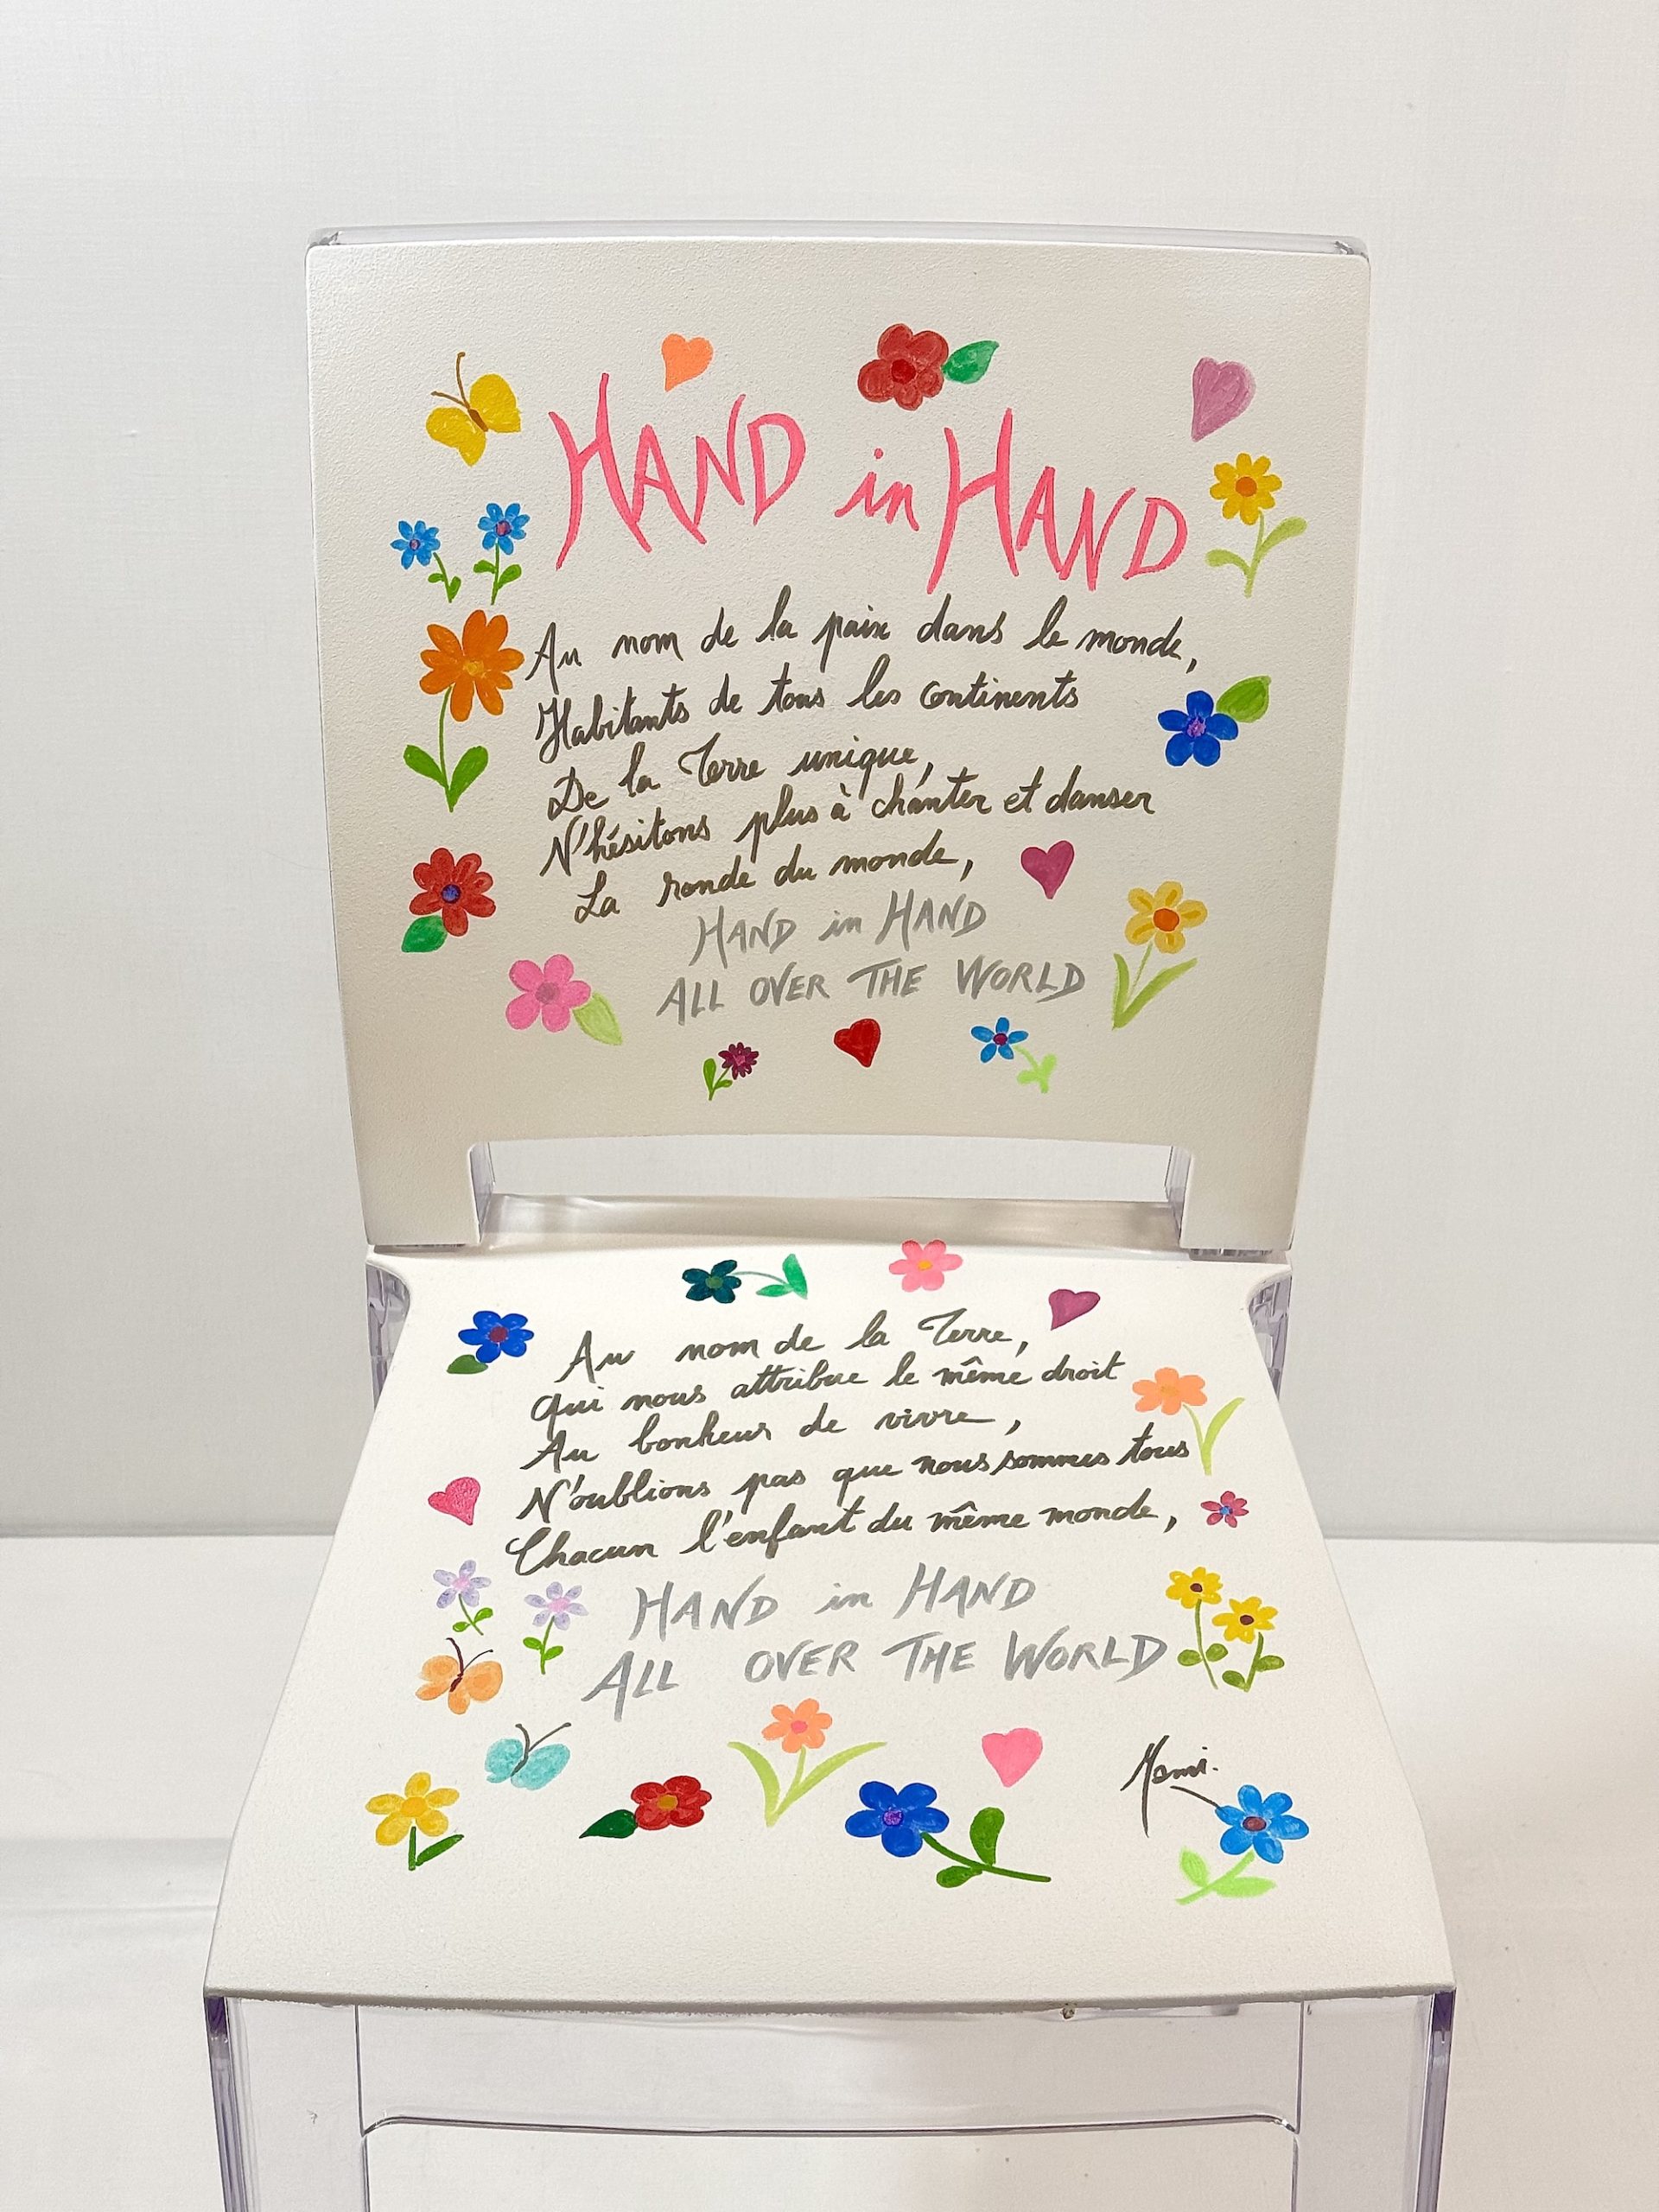 HAND in HAND
Au nom de la paix dans le monde,
Habitants de tous les continents
De la Terre unique,
N'hésitons plus à chanter et danser
La ronde du monde,
HAND in HAND
ALL OVER THE WORLD
Au nom de la Terre,
Qui nous attribue le même droit
Au bonheur de vivre,
N'oublions pas que nous sommes tous
Chacun l'enfant du même monde,
HAND in HAND
ALL OVER THE WORLD